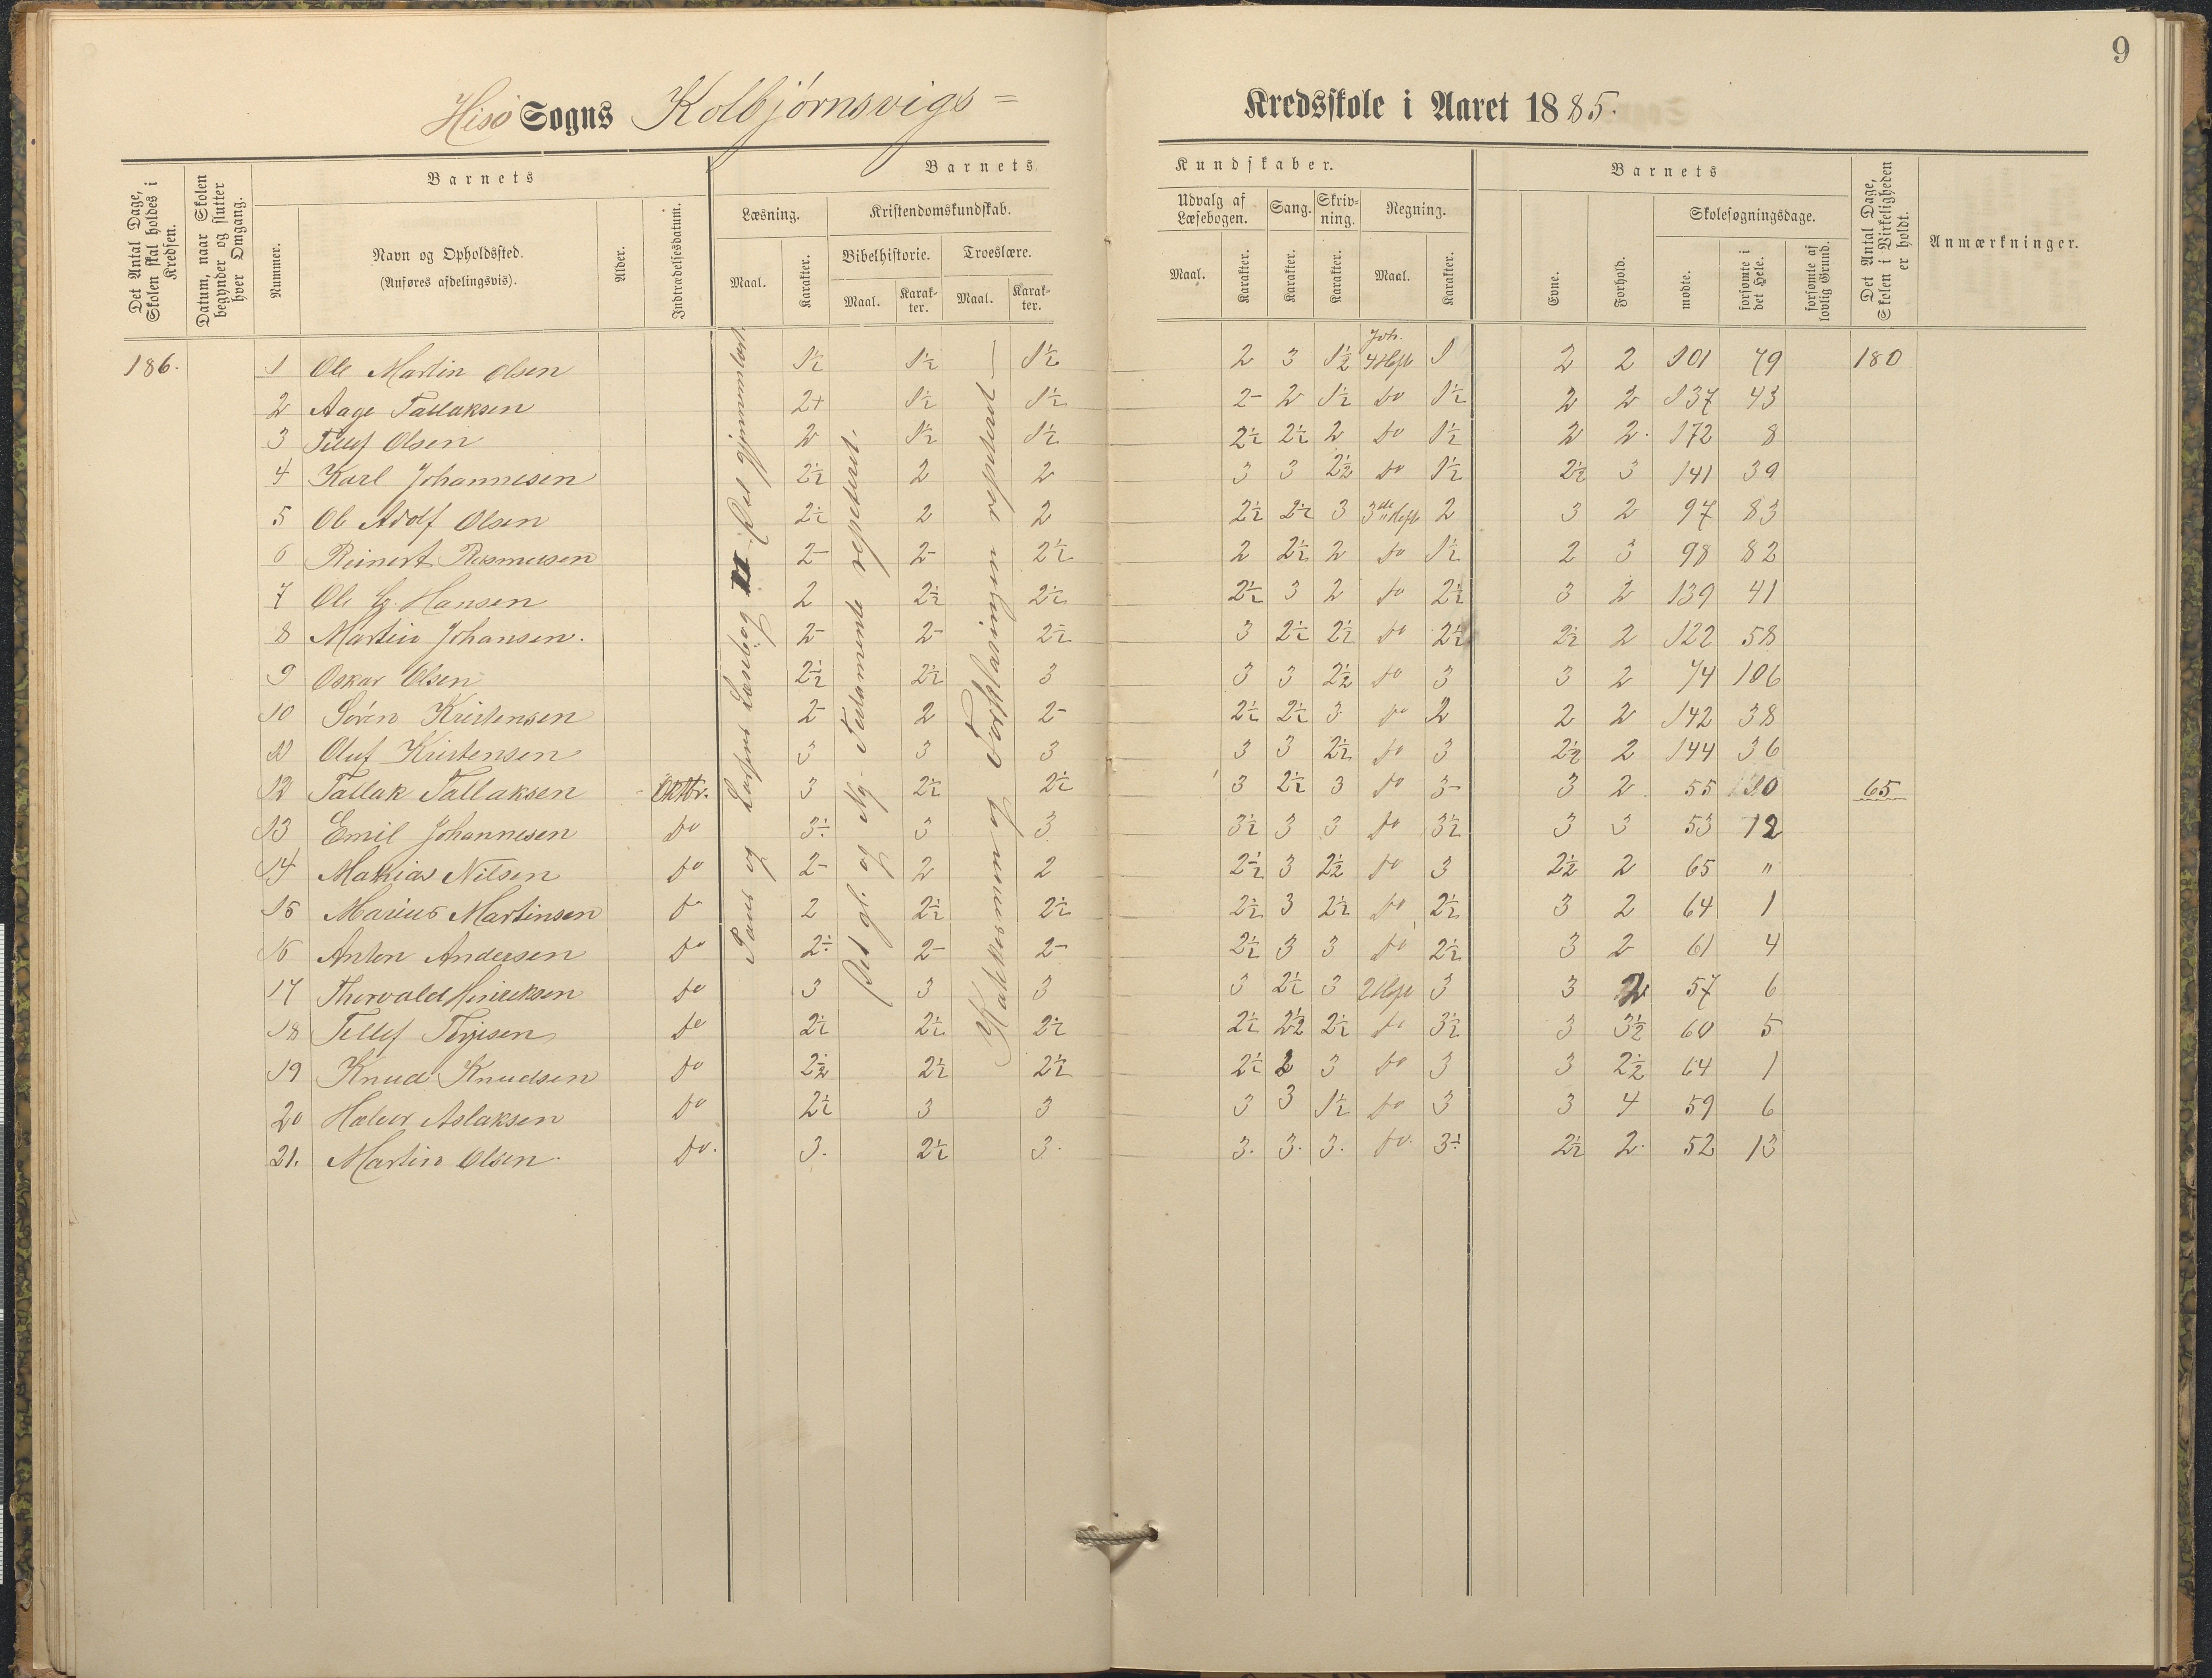 9
Hisö Sogns Kolbjørnsvigs= Kredsskole i Aaret 1885.
Det Antal Dage, Skolen skal holdes i Kredsen.
Datum, naar Skolen begynder og slutter hver Omgang.
Barnets
Nummer.
Navn og Opholdssted.
(Anføres afdelingsvis).
Alder.
Indtrædelsesdatum.
Barnets Kundskaber.
Læsning.
Maal.
Karakter.
Kristendomskundskab.
Bibelhistorie.
Maal.
Karakter.
Troeslære.
Maal.
Karakter.
Udvalg af Læsebogen.
Maal.
Karakter.
Sang.
Karakter.
Skrivning.
Karakter.
Regning.
Maal.
Karakter.
Barnets
Evne.
Forhold.
Skolesøgningsdage.
mødte.
forsømte i det Hele.
forsømte af lovlig Grund.
Det Antal Dage, Skolen i Virkeligheden er holdt.
Anmærkninger.
Læsebog
Det gl. og Ny Testamente repeteret.
Katekismen og Forklaringen repeteret
186. 1 Ole Martin Olsen 1½ 1½ 1½ 2 3 1½ Joh. 4 Heft 1 2 2 101 79 180
2 Aage Tallaksen 2+ 1½ 1½ 2- 2 1½ do 1½ 2 2 137 43
3 Tellef Olsen 2 1½ 1½ 2½ 2½ 2 do 1½ 2 2. 172 8
4 Karl Johannesen 2½ 2 2 3 3 2½ do 1½ 2½ 3 141 39
5 Ole Adolf Olsen 2½ 2 2 2½ 2½ 3 3die Heft 2 3 2 97 83
6 Reinert Rasmussen 2- 2- 2½ 2 2½ 2 do 1½ 2 3 98 82
7 Ole G. Hansen 2 2½ 2½ 2½ 3 2 do 2½ 3 2 139 41
8 Martin Johansen. 2- 2- 2½ 3 2½ 2½ do 2½ 2½ 2 122 58
9 Oskar Olsen 2½ 2½ 3 3 3 2½ do 3 3 2 74 106
10 Søren Kristensen 2- 2 2- 2½ 2½ 3 do 2 2 2 142 38
11 Oluf Kristensen 3 3 3 3 3 2½ do 3 2½ 2 144 36
12 Tallak Tallaksen Oktbr. 3 2½ 2½ 3 2½ 3 do 3- 3 2 55 10 65
13 Emil Johannesen do 3÷ 3 3 3½ 3 3 do 3½ 3 3 53 12
14 Mathias Nilsen do 2- 2 2 2½ 3 2½ do 3 2½ 2 65 "
15 Marius Martinsen do 2 2½ 2½ 2½ 3 2½ do 2½ 3 2 64 1
16 Anton Andersen do 2÷ 2- 2- 2½ 3 3 do 2½ 3 2 61 4
17 Thorvald Hinriksen do 3 3 3 3 2½ 3 2 Heft 3 3 2 57 6
18 Tellef Terjesen do 2½ 2½ 2½ 2½ 2½ 2½ do 3½ 3 3½ 60 5
19 Knud Knudsen do 2½ 2½ 2½ 2½ 2 3 do 3 3 2½ 64 1
20 Halvor Aslaksen do 2½ 3 3 3 3 1½ do 3 3 4 59 6
21. Martin Olsen. do. 3. 2½ 3. 3. 3. 3. do. 3÷ 2½ 2. 52 13